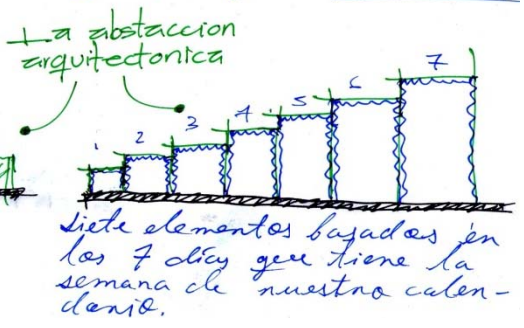 La abstaccion
arquitectonica
1 2 3 4 5 6 7
siete elementos basados en
los 7 días que tiene la
semana de nuestro calen-
dario.